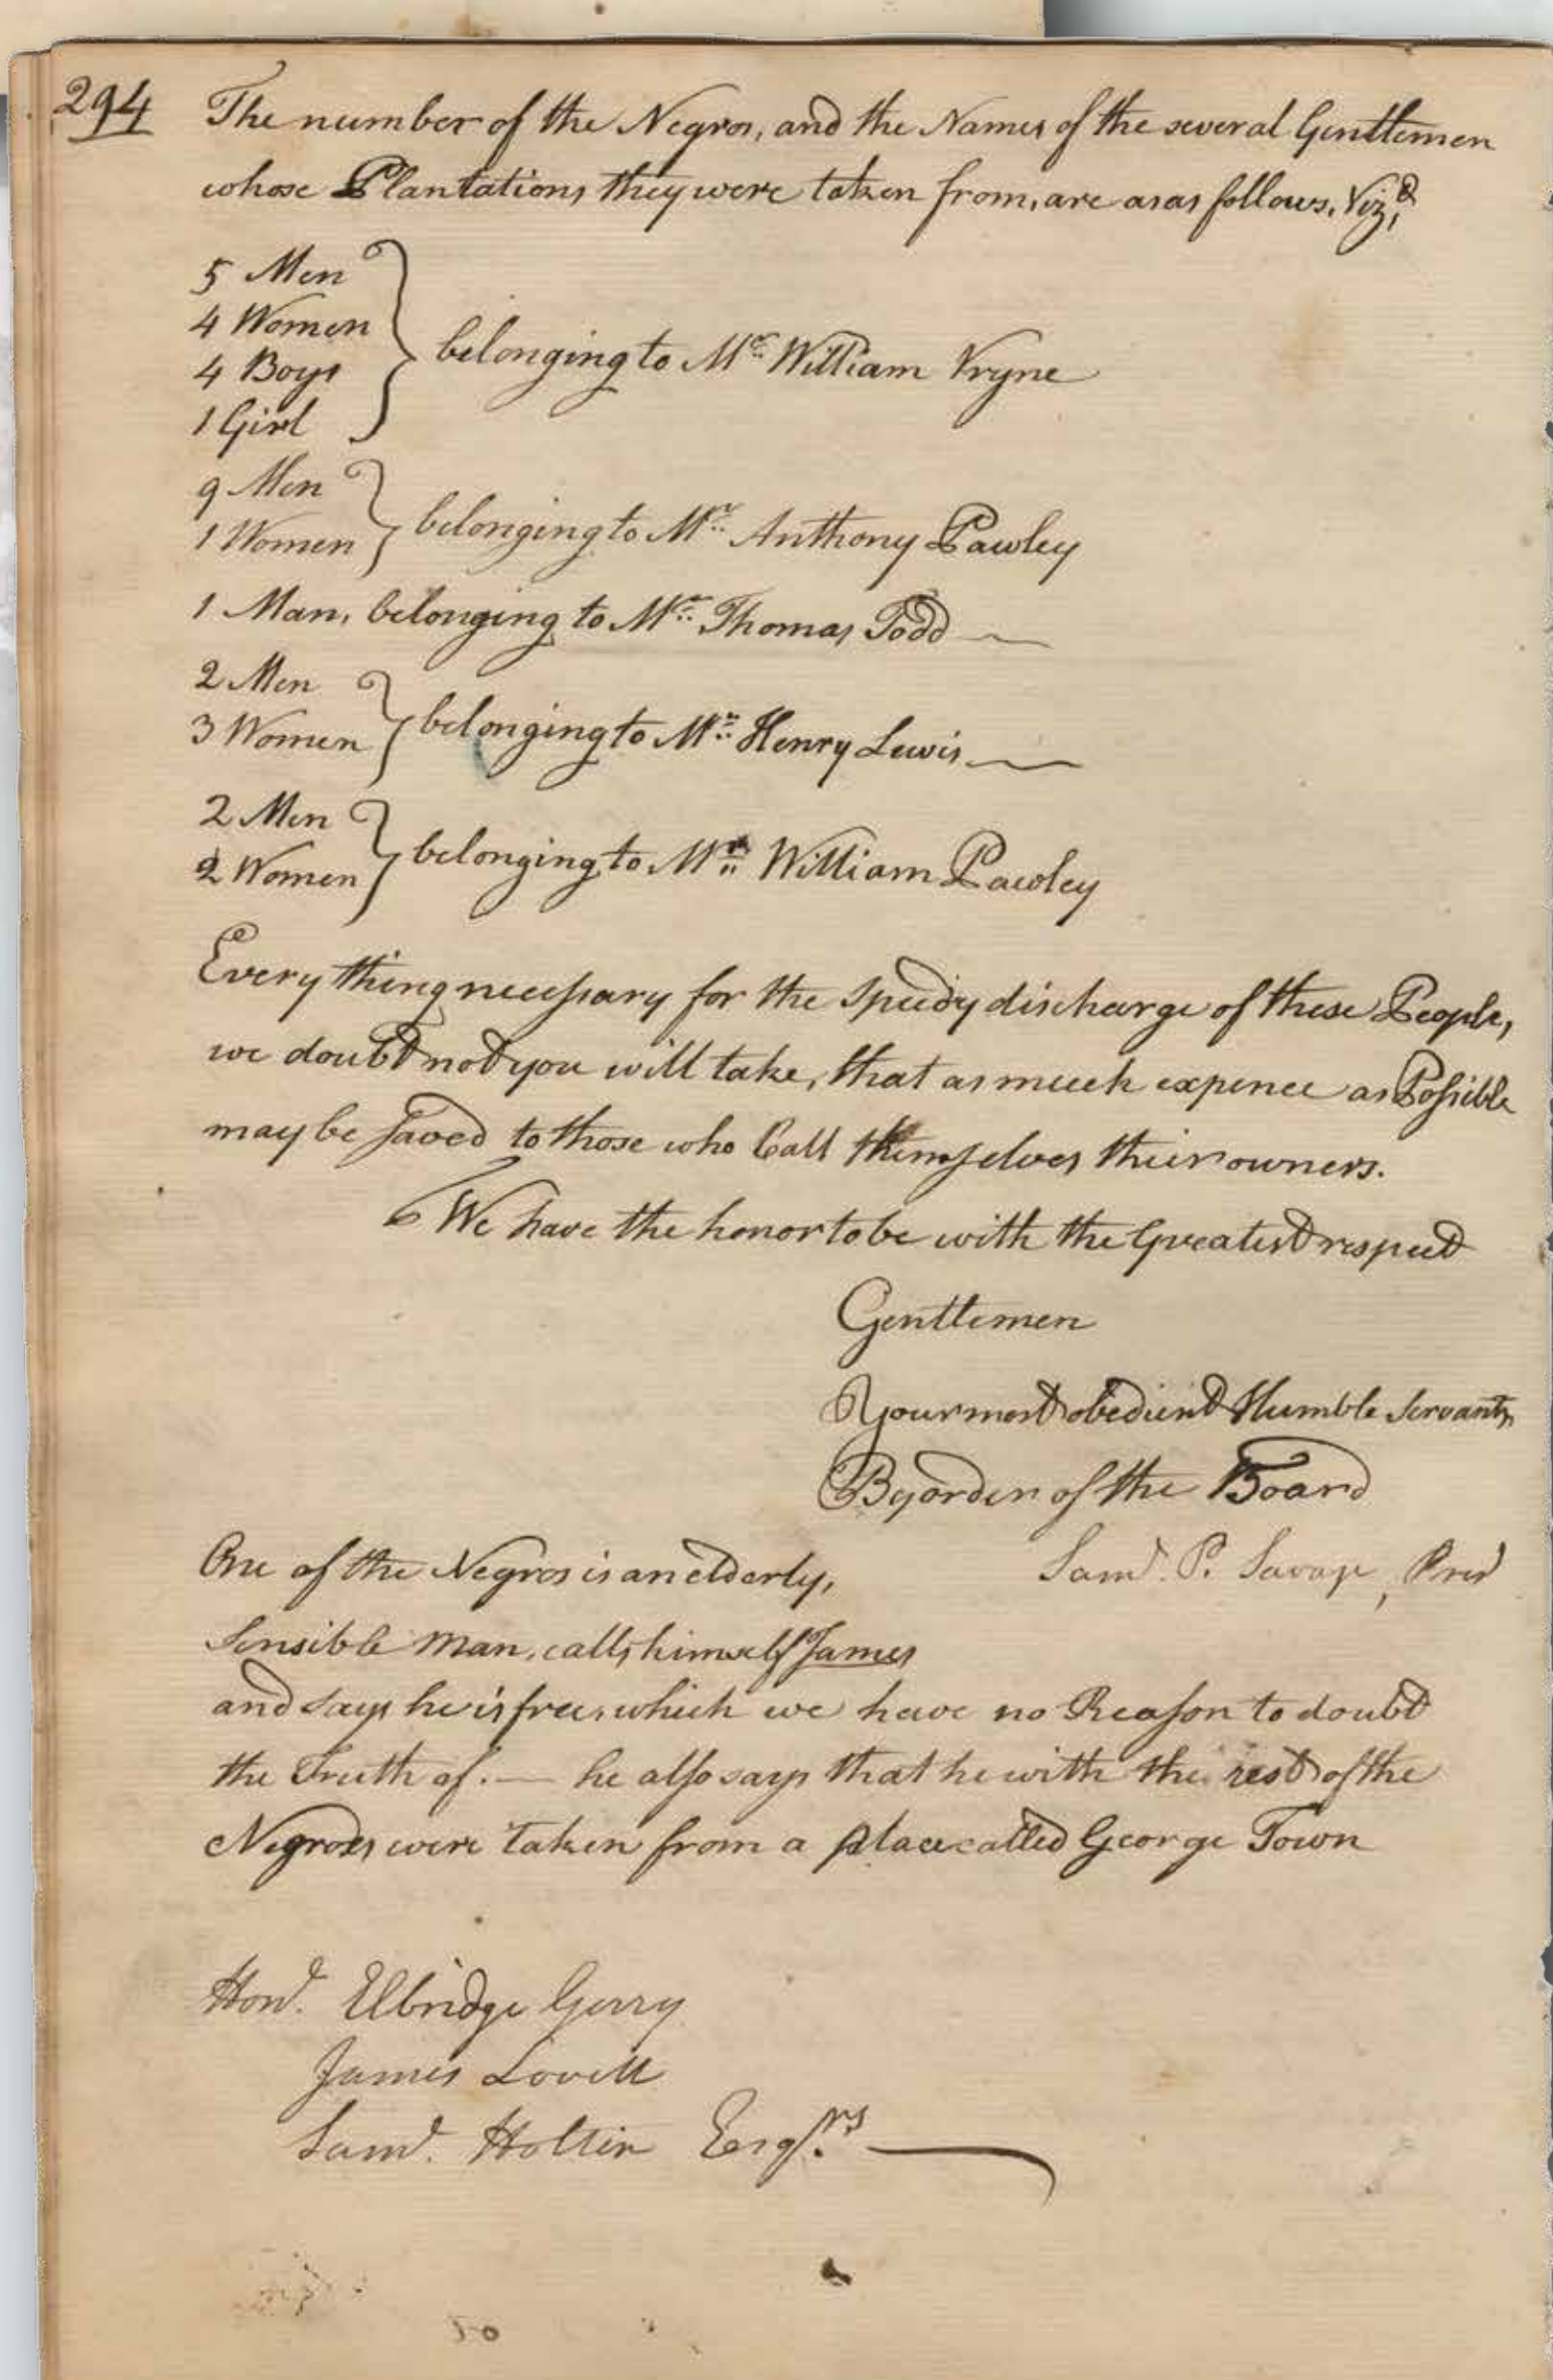 294
The number of the Negros, and the Names of the several Gentlemen
whose Plantations they were taken from, are as as follows, Vizt,
5 Men
4 Women
4 Boys
1 Girl
belonging to Mr. William Vryne
9 Men
1 Women
belonging to Mr. Anthony Pawley
1 Man, belonging to Mr. Thomas Todd
2 Men
3 Women
belonging to Mr. Henry Lewis
2 Men
2 Women
belonging to Mr. William Pawley
Every thing necessary for the speedy discharge of these People,
we doubt not you will take, that as much expence as Possible
may be saved to those who Call themselves their owners.
We have the honor to be with the Greatest respect
Gentlemen
Your most obedient Humble Servants,
By order of the Board
Saml. P. Savage, Prest
One of the Negros is an elderly,
Sensible Man, calls himself James
and says he is free, which we have no Reason to doubt
the Truth of. — he also says that he with the rest of the
Negroes were taken from a place called George Town
Honl. Elbridge Gerry
James Lovell
Saml. Holten Esqrs.